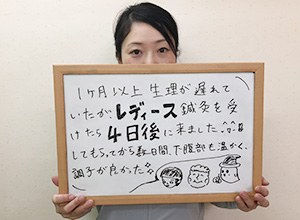 1ヶ月以上 生理が遅れて
いたが、レディース鍼灸を受
けたら4日後に来ました
してもらってから数日間、下腹部も温かく、
調子が良かった